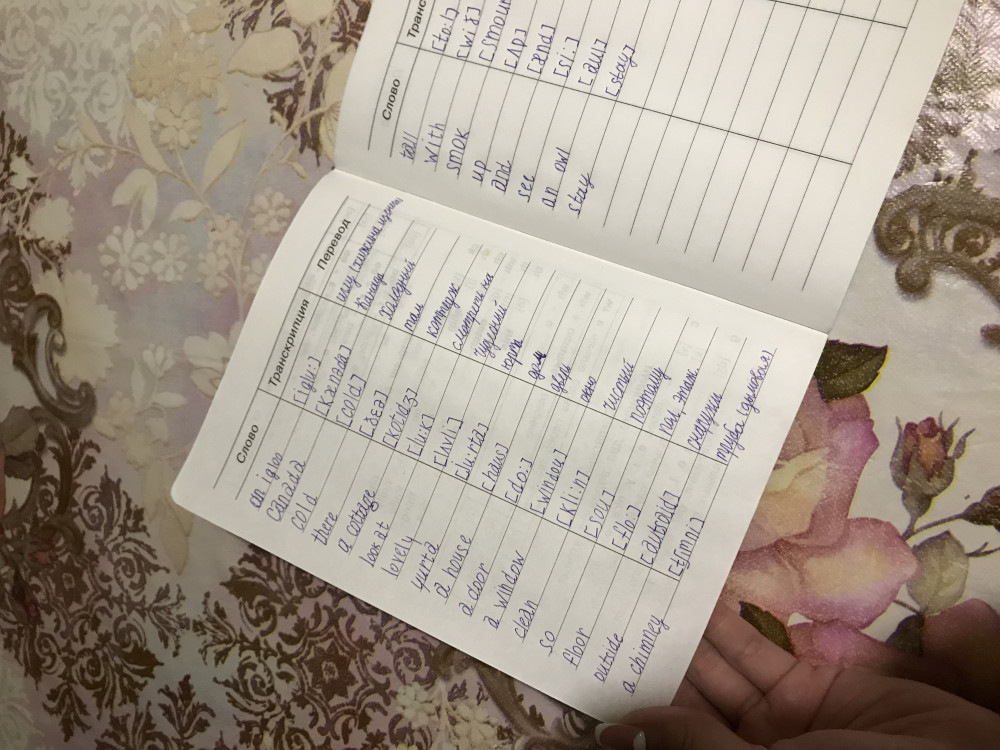 Слово Транскрипция Перевод
an igloo [iglu:] иглу (хижина
Canada [kænədə] Канада
cold [cold] холодный
there [ðɛə] там
a cottage [kotidʒ] коттедж
look at [lu:k] смотреть на
lovely [lʌvli] чудесный
yurta юрта
a house [haus] дом
a door [do:] дверь
a window [window] окно
clean [kli:n] чистый
so [sou] поэтому
floor [flo:] пол, этаж
outside [autsaid] снаружи
a chimney [tʃimni] труба (дымовая)
Слово Транс
tall [to:l]
with [wið]
smok [smouk
up [ʌp]
and [ænd]
see [si:]
an owl [aul]
stay [stay]